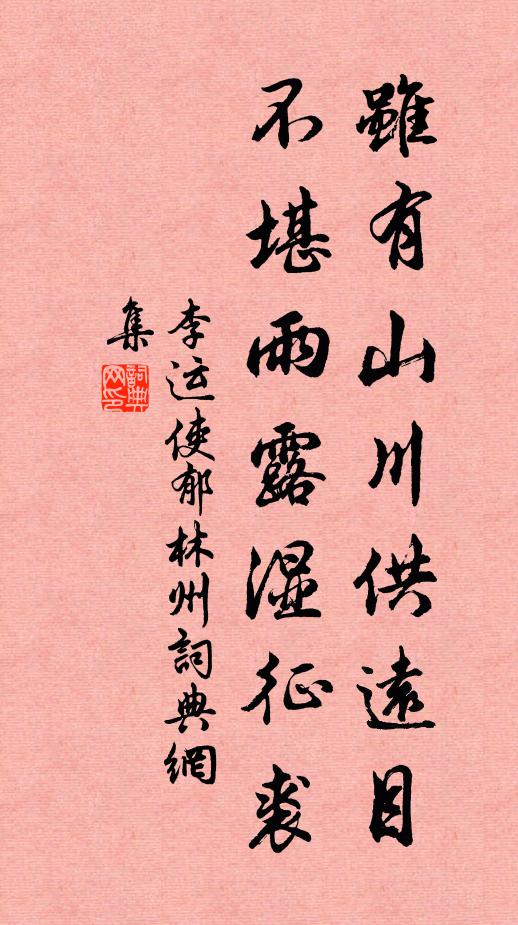 雖有山川供遠目
不堪雨露濕征裘
李运使郁林州詞典網
集
詞典網印